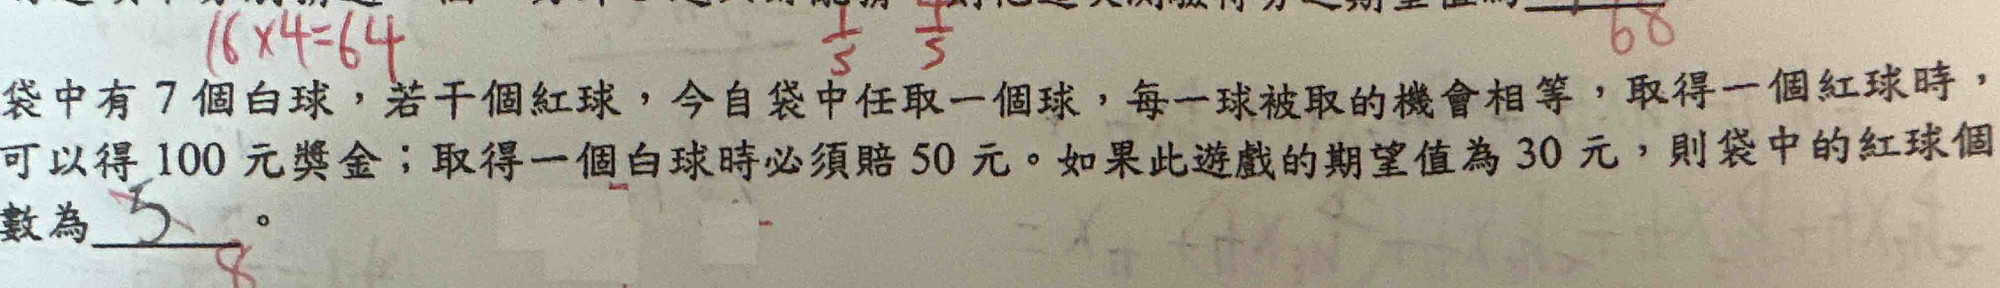 16×4=64 1/5 4/5 68
袋中有 7 個白球，若干個紅球，今自袋中任取一個球，每一球被取的機會相等，取得一個紅球時，
可以得 100 元獎金；取得一個白球時必須賠 50 元。如果此遊戲的期望值為 30 元，則袋中的紅球個
數為 5 。
8